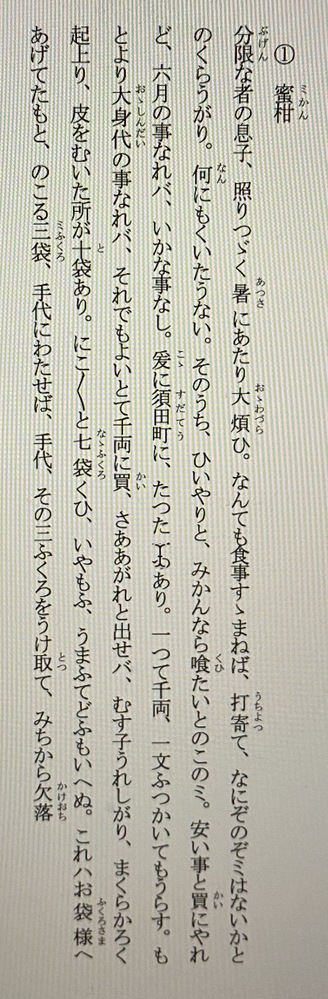 ① 蜜柑
分限な者の息子、照りつゞく暑にあたり大煩ひ。なんでも食事すゝまねば、打寄て、なにぞのぞミはないかと
のくらうがり。何にもくいたうない。そのうち、ひいやりと、みかんなら喰たいとのこのミ。安い事と買にやれ
ど、六月の事なれバ、いかな事なし。爰に須田町に、たつた一つあり。一つて千両、一文ふつかいてもうらず。も
とより大身代の事なれバ、それでもよいとて千両に買、さああがれと出せバ、むす子うれしがり、まくらかろく
起上り、皮をむいた所が十袋あり。にこ〳〵と七袋くひ、いやもふ、うまふてどふもいへぬ。これハお袋様へ
あげてたもと、のこる三袋、手代にわたせば、手代、その三ふくろをうけ取て、みちから欠落